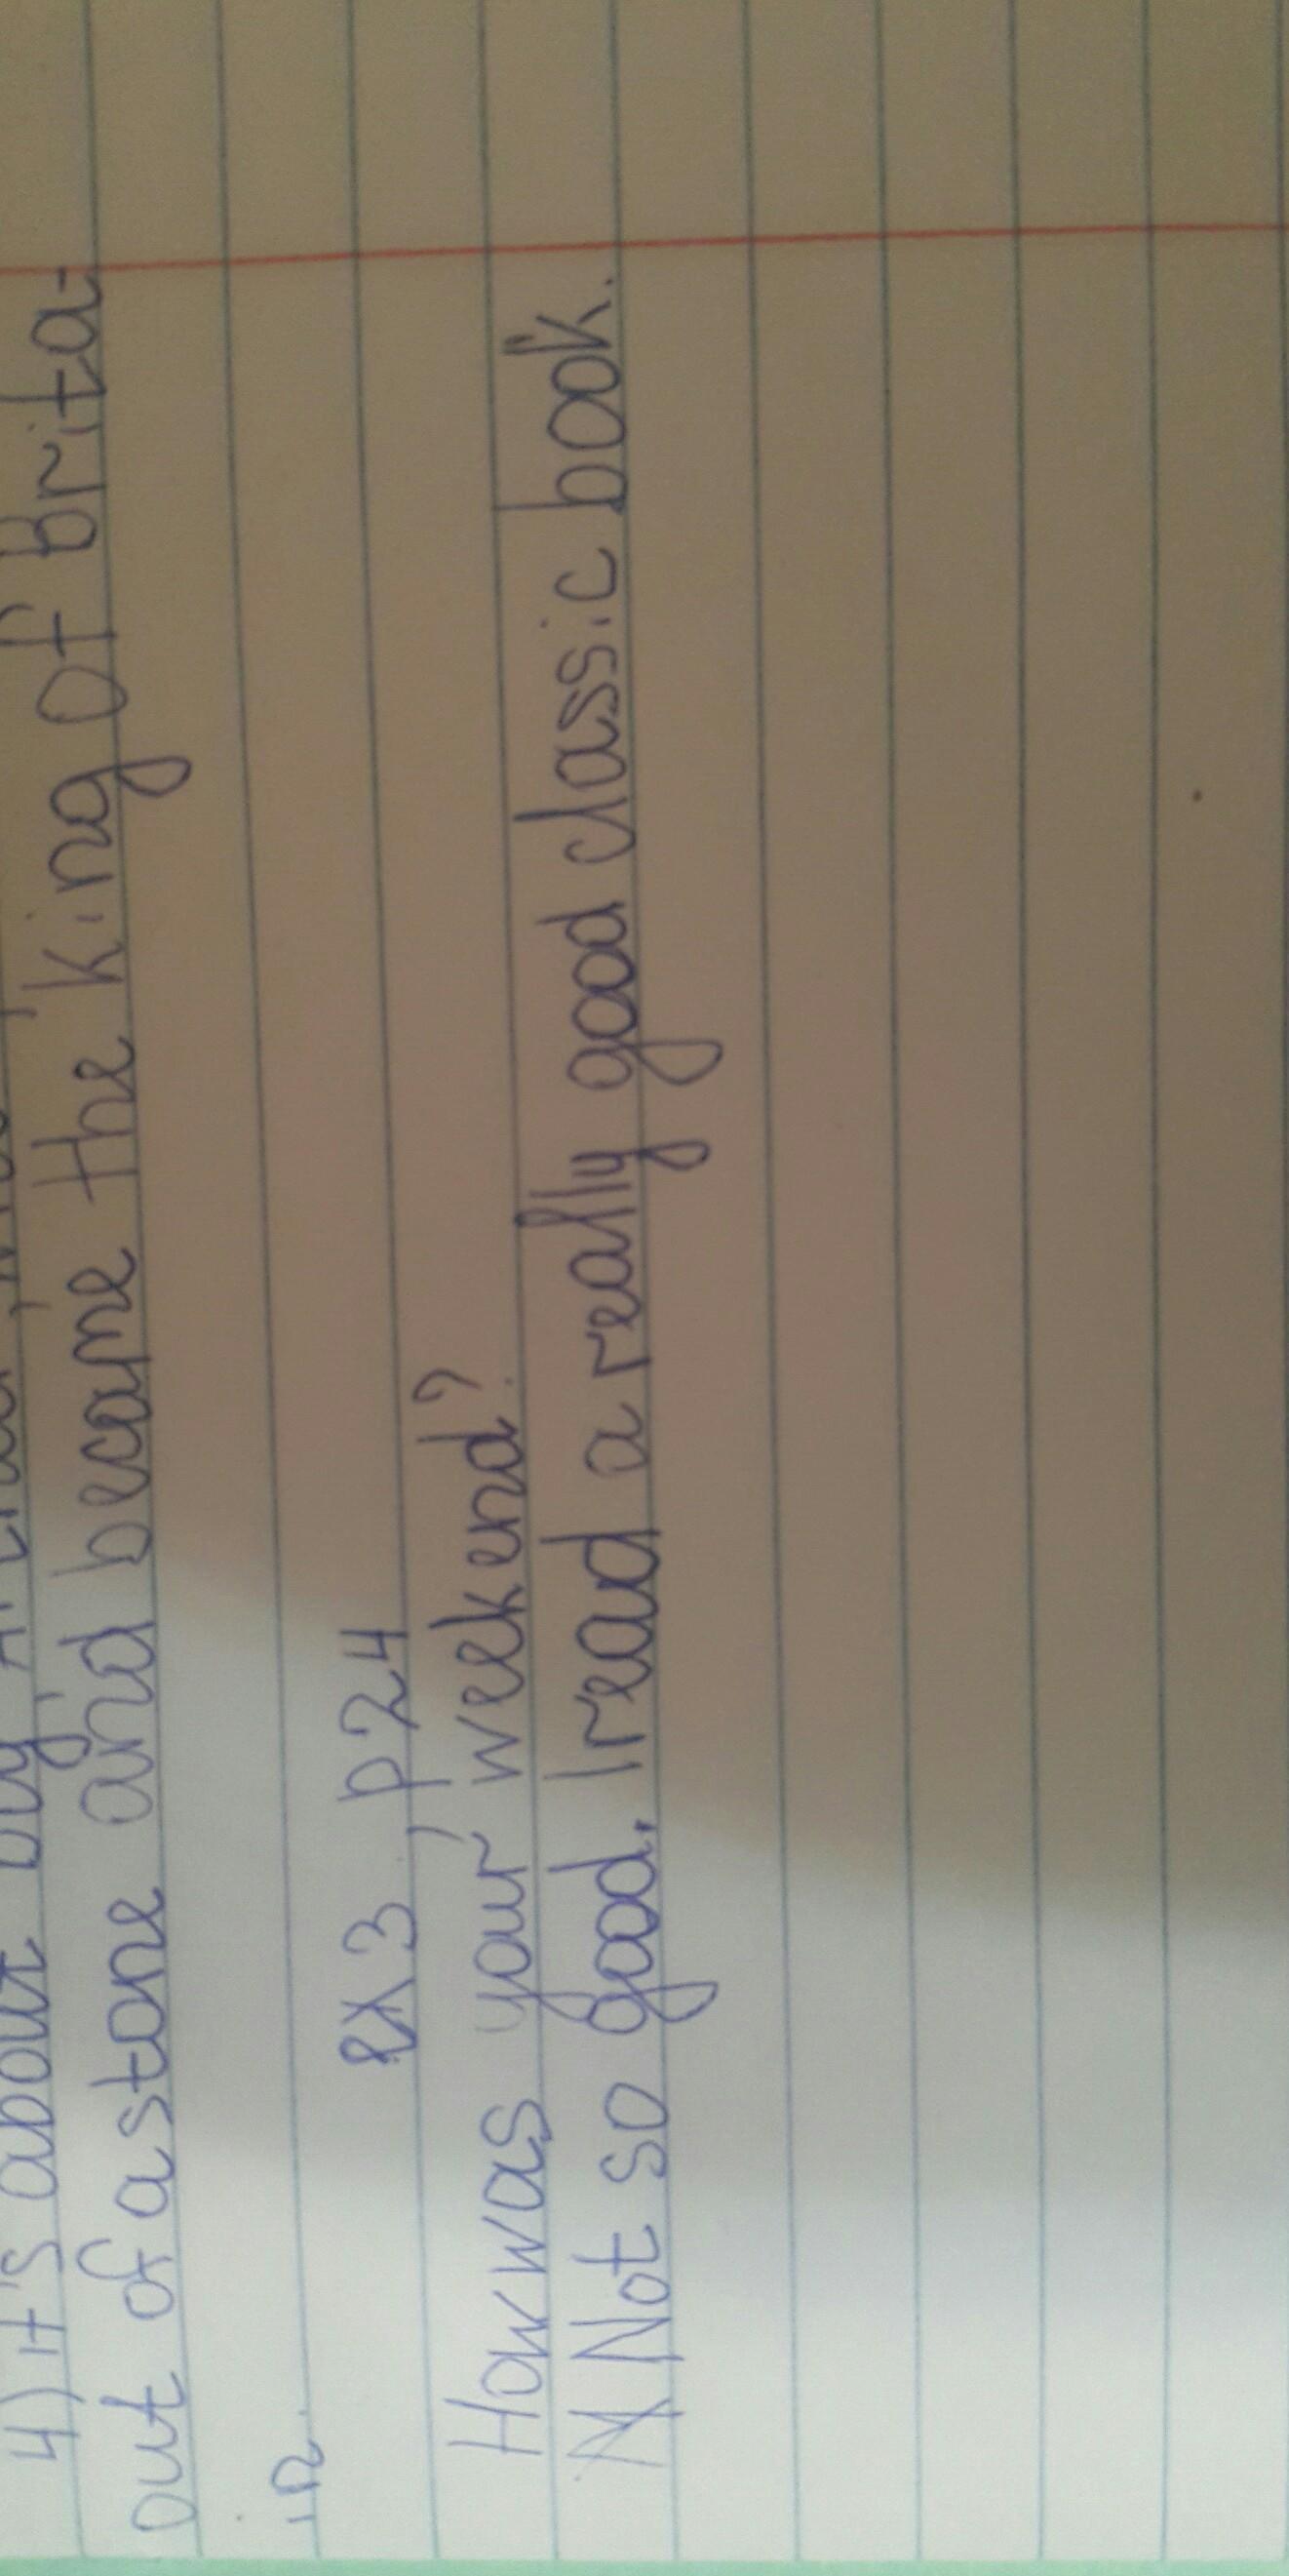 4) It's about
out of a stone and became the king of Brita-
in.
ex 3 p 24
How was your weekend?
Not so good. I read a really good classic book.